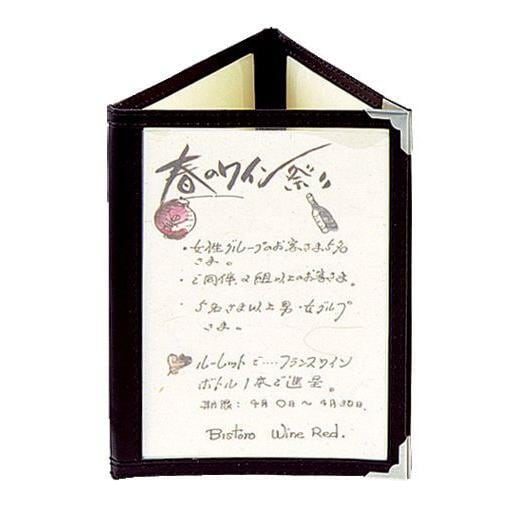 春のワイン祭り
・女性グループのお客さま5名
さま。
・ご同伴2組以上のお客さま。
・5名さま以上男・女グループ
さま。
ルーレットで‥‥フランスワイン
ボトル1本ご進呈。
期限:4月0日〜4月30日.
Bistoro Wine Red.